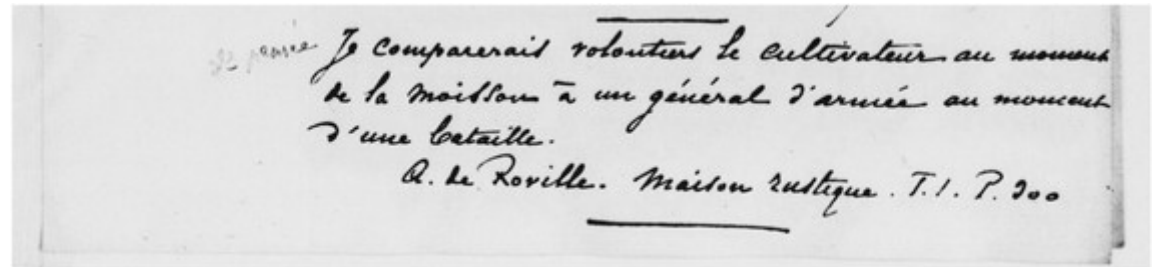 2e pensée
Je comparerais volontiers le cultivateur au moment
de la moisson à un général d'armée au moment
d'une bataille.
A. de Roville. Maison rustique. T. 1. P. 300